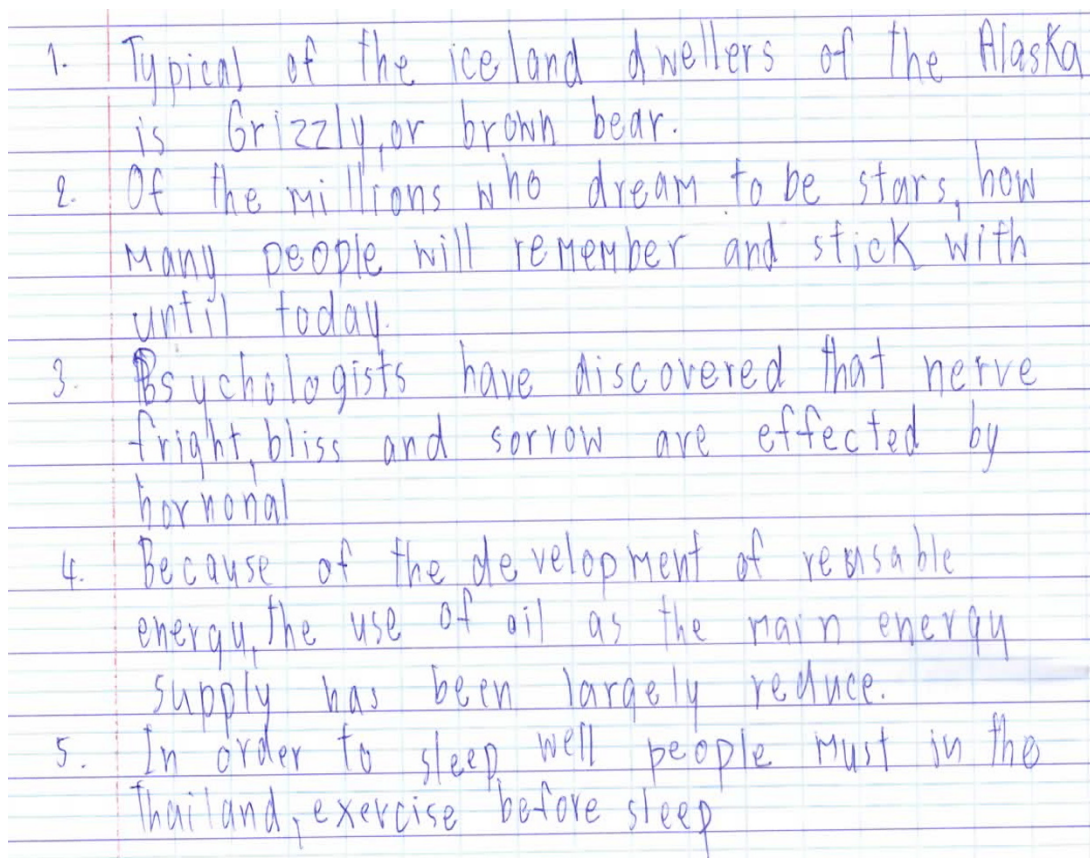 1. Typical of the iceland dwellers of the Alaska
is Grizzly, or brown bear.
2. Of the millions who dream to be stars, how
many people will remember and stick with
until today.
3. Psychologists have discovered that nerve
fright, bliss and sorrow are effected by
hormonal
4. Because of the development of reusable
energy, the use of oil as the main energy
supply has been largely reduce.
5. In order to sleep well people must in the
Thailand, exercise before sleep